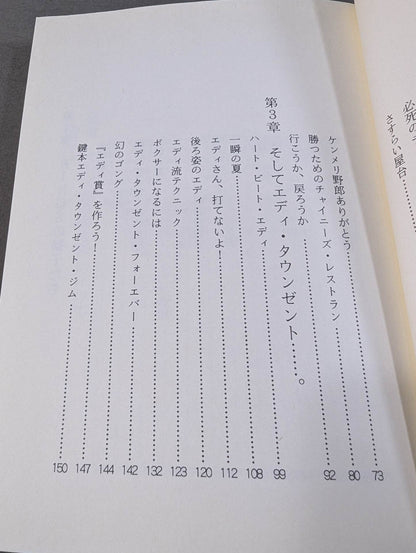 必死の
さすらい屋台……
ケンメリ野郎ありがとう……73
勝つためのチャイニーズ・レストラン……80
行こうか、戻ろうか……92
第3章 そしてエディ・タウンゼント……。
ハート・ビート・エディ……99
一瞬の夏……108
エディさん、打てないよ!……112
後ろ姿のエディ……120
エディ流テクニック……123
ボクサーになるには……132
エディ・タウンゼント・フォーエバー……142
幻のゴング……144
『エディ賞』を作ろう!……147
鍵本エディ・タウンゼント・ジム……150